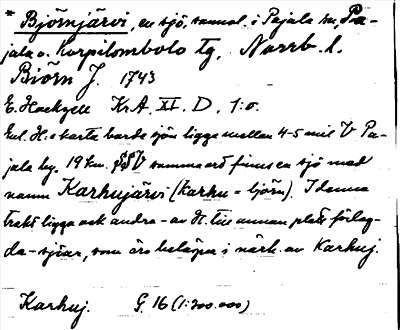 * Björnjärvi, en sjö, samml. i Pajala sn, Pa-
jala o. Korpilombolo tg, Norrb. l.
Biörn J. 1743
E. Hackzell K.A. XI. D. 1:o.
Enl. H:s karta borde sjön ligga mellan 4-5 mil V Pa-
jala by. 19 km. SSV samma ort finns en sjö med
namn Karhujärvi (karhu = björn). I denna
trakt ligga ock andra - av H. till annan plats förlag-
da - sjöar, som äro belägna i närh. av Karhuj.
Karhuj. G. 16 (1:200.000)